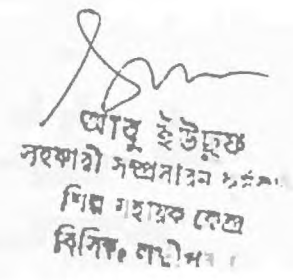 আবু ইউছুফ
সহকারী সম্প্রসারন
শিল্প সহায়ক কেন্দ্র
বিসিক,